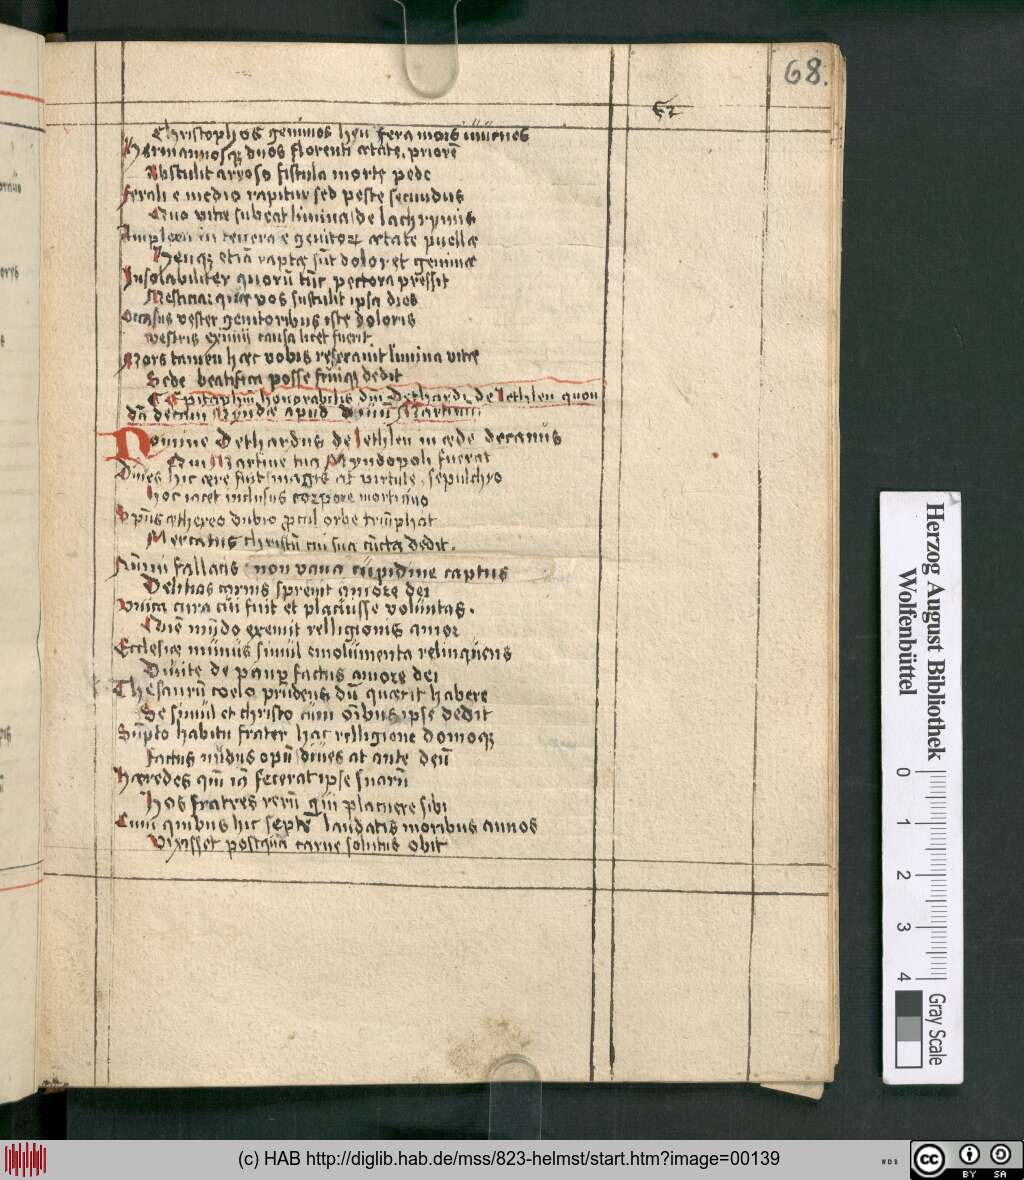 68.
Christophos geminos heu fera mors iuuenes
Hermannosq; duos florenti ætate, priorē
Abstulit arroso fistula morte pede
Ferali e medio rapitur sed peste secundus
Quo vitæ subeat limina de lachrymis
in tenera e genitoꝝ ætate puellæ
Heuq; etiā raptæ sūt dolor et geminæ
Insolabiliter quorū tūc pectora pressit
Mesticia: quæ vos sustulit ipsa dies
Occasus vester genitoribus iste doloris
vestris causa licet fuerit
Mors tamen hæc vobis reserauit limina vitæ
Sede beatifica posse dedit
Epitaphiū honorabilis dnī Dethardi de Lethlen quon
dā decani Myndæ apud diuū Martinū
Nomine Dethardus de Lethlen in æde decanus
Qui Martine tua Myndopoli fuerat
Diues hic ære fuit magis at virtute, sepulchro
hoc iacet inclusus corpore mortuuo
Spūs æthereo dubio ꝓcul orbe triūphat
Mercatus christū cui sua cūcta dedit.
Nūmi fallacis non vana cupidine captus
Delitias carnis spreuit amore dei
Vnica cura cui fuit et placuisse voluntas.
Quē mūdo exemit relligionis amor
Ecclesiæ munus simul emolumenta relinquens
Diuite de paup factus amore dei
Thesaurū coelo prudens dū quærit habere
Se simul et christo cum oībus ipse dedit
Sūpto habitu frater hac relligione domoq;
factus nudus opū diues at ante deū
Hæredes quī iā fecerat ipse suarū
Hos fratres rerū qui placuere sibi
Cum quibus hic septē laudatis moribus annos
Vixisset postquā carne solutus obit
Herzog August Bibliothek
Wolfenbüttel
0 1 2 3 4
Gray Scale
(c) HAB http://diglib.hab.de/mss/823-helmst/start.htm?image=00139
WDB
cc BY SA